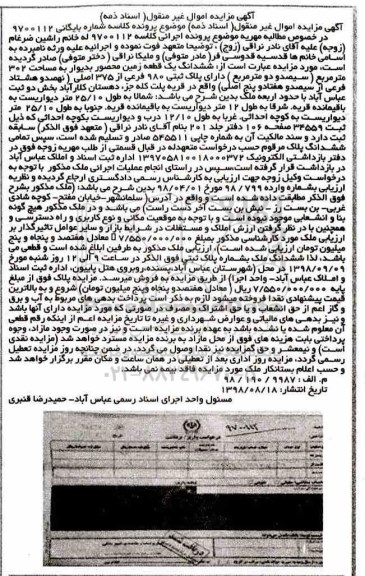 آگهی مزایده اموال غیر منقول( اسناد ذمه)
آگهی مزایده اموال غیر منقول( اسناد ذمه) موضوع پرونده کلاسه شماره بایگانی ۹۷۰۰۱۱۲
در خصوص مطالبه مهریه موضوع پرونده اجرائی کلاسه ۹۷۰۰۱۱۲ له خانم راشین ضرغام
(زوجه) علیه آقای نادر نراقی (زوج) ، توضیحا متعهد فوت نموده و اجرائیه علیه ورثه نامبرده به
اسامی خانم ها قدسیه قدوسی فر( مادر متوفی) و ملیکا نراقی ( دختر متوفی) صادر گردیده
است. مورد مزایده عبارت است از: ششدانگ یک قطعه زمین محصور بدیوار به مساحت ۳۰۲
مترمربع ( سیصد و دو مترمربع ) دارای پلاک ثبتی ۹۸۰ فرعی از ۳۷۵ اصلی ( نهصد و هشتاد
فرعی از سیصد و هفتاد و پنج اصلی) واقع در قریه پلت کله جز، دهستان کلارآباد بخش دو ثبت
عباس آباد با حدود اربعه ملک بدین شرح می باشد: شمالا به طول ۲۵/۱۰ متر دیواریست به
باقیمانده قریه. شرقا به طول ۱۲ متر دیواریست به باقیمانده قریه. جنوبا به طول ۲۵/۱۰ متر
دیواریست به کوچه احداثی. غربا به طول ۱۲/۱۰ درب و دیواریست بکوچه احداثی که ذیل
ثبت ۳۴۵۵۹ صفحه ۱۰۶ دفتر جلد ۲۰۱ بنام آقای نادر نراقی ( متعهد فوق الذکر) سابقه
ثبت دارد و سند مالکیت آن به شماره چاپی ۵۴۵۵۱۱ صادر و تسلیم شده است، سپس تمامی
ششدانگ پلاک مرقوم حسب درخواست متعهدله در قبال قسمتی از طلب مهریه زوجه فوق در
دفتر بازداشتی الکترونیک ۱۳۹۷۰۵۸۱۰۰۱۸۰۰۰۳۷۲ اداره ثبت اسناد و املاک عباس آباد
در بازداشت قرار گرفته است، سپس در راستای انجام عملیات اجرائی ملک مذکور با توجه به
درخواست وکیل زوجه جهت ارزیابی به کارشناس رسمی دادگستری ارجاع گردیده و نظریه
ارزیابی بشماره وارده ۹۸/۷۹۹ مورخ ۹۸/۰۴/۰۱ بدین شرح می باشد: (ملک مذکور بشرح
فوق الذکر مطابقت داده شده است و واقع در آدرس: سلمانشهر-خیابان مفتح- کوچه شادی
غربی- بن بست رز - نبش بن بست آخر دست راست) می باشد و در ملک مذکور هیچ گونه
بنا و انشعابی موجود نبوده است و با توجه به موقعیت مکانی و نوع کاربری و راه دسترسی و
همچنین با در نظر گرفتن ارزش املاک و مستغلات در شرایط بازار و سایر عوامل تاثیرگذار بر
ارزیابی ملک مورد کارشناسی مذکور بمبلغ ۷/۵۵۰/۰۰۰/۰۰۰ ( معادل هفتصد و پنجاه و پنج
میلیون تومان ارزیابی شده است)، ارزیابی ملک مذکور به طرفین ابلاغ شده است و قطعی می
باشد، لذا ششدانگ ملک بشماره پلاک ثبتی فوق الذکر در ساعت ۹ الی ۱۲ روز شنبه مورخ
۱۳۹۸/۰۹/۰۹ در محل (شهرستان عباس آباد،پسنده،روبروی هتل پاپیون، اداره ثبت اسناد
و املاک عباس آباد- واحد اجرا) از طریق مزایده به فروش میرسد. مزایده پلاک فوق از مبلغ
پایه ۷/۵۵۰/۰۰۰/۰۰۰ ریال ( معادل هفتصد و پنجاه و پنج میلیون تومان) شروع و به بالاترین
قیمت پیشنهادی نقدا فروخته میشود لازم به ذکر است پرداخت بدهی های مربوط به آب و برق
و گاز اعم از حق انشعاب و یا حق اشتراک و مصرف در صورتی که مورد مزایده دارای آنها باشد
و نیز بدهی های مالیاتی و عوارض شهرداری و غیره تا تاریخ مزایده اعم از اینکه رقم قطعی
آن معلوم شده یا نشده باشد به عهده برنده مزایده است و نیز در صورت وجود مازاد، وجوه
پرداختی بابت هزینه های فوق از محل مازاد به برنده مزایده مسترد خواهد شد (مزایده نقدی
است) و نیمعشر و حق گمزایده نیز نقدا وصول می گردد، در ضمن چنانچه روز مزایده تعطیل
رسمی گردد، مزایده روز اداری بعد از تعطیلی در همان ساعت و مکان مقرر برگزار خواهد شد
و حسب اعلام بستانکار ملک مورد مزایده فاقد بیمه نمی باشد.
م. الف: ۹۹۸۷ /۱۹۰/ ۹۸
تاریخ انتشار: ۱۳۹۸/۰۸/۱۸
مسئول واحد اجرای اسناد رسمی عباس آباد- حمیدرضا قنبری